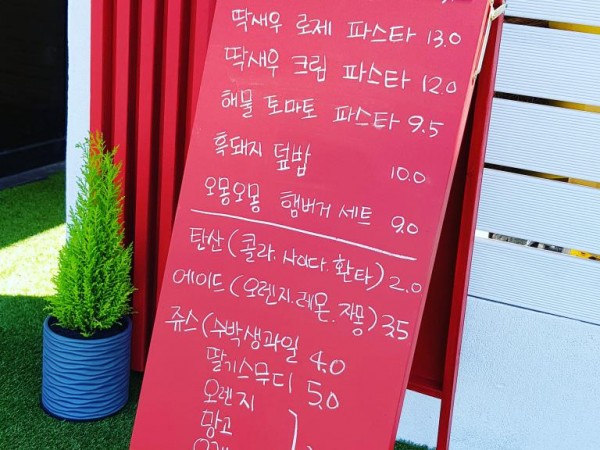 딱새우 로제 파스타 13.0
딱새우 크림 파스타 12.0
해물 토마토 파스타 9.5
흑돼지 덮밥 10.0
오몽오몽 햄버거 세트 9.0
탄산(콜라.사이다.환타) 2.0
에이드(오렌지.레몬.자몽) 3.5
쥬스(수박생과일 4.0
딸기스무디 5.0
오렌지
망고